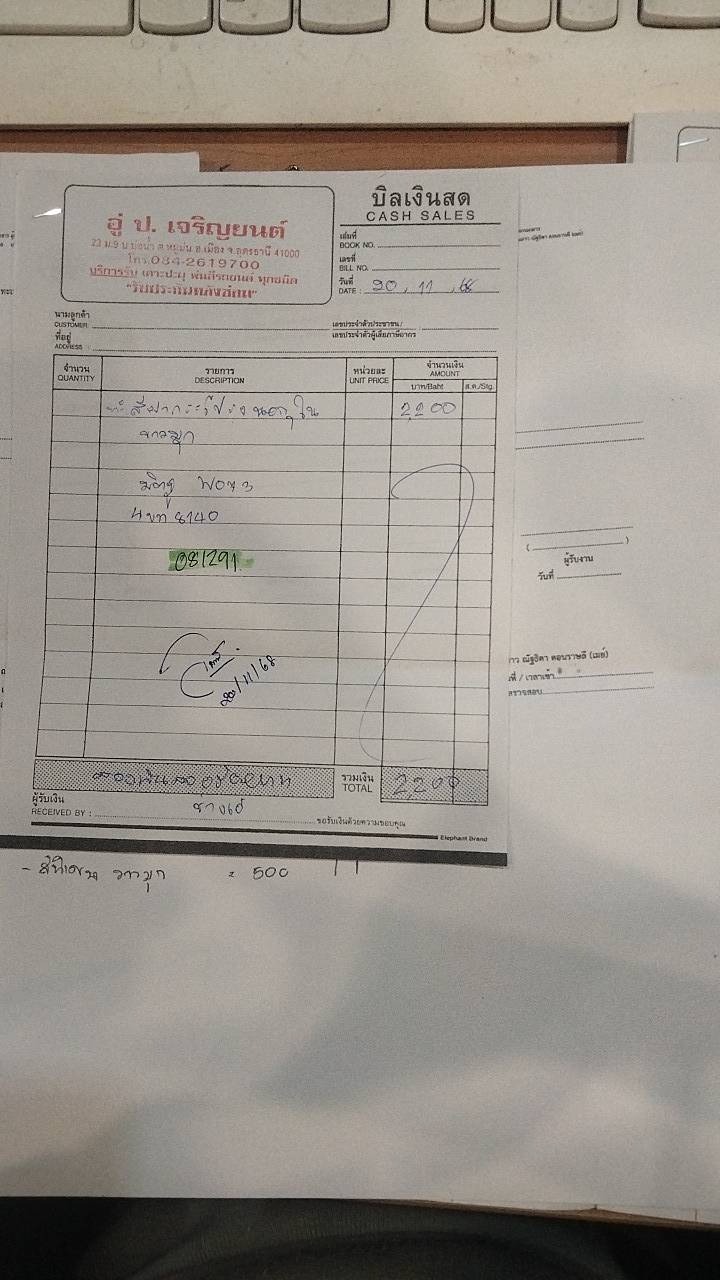 บิลเงินสด
CASH SALES
อู่ ป. เจริญยนต์
23 ม.9 บ.บ่อน้ำ ต.หมูม่น อ.เมือง จ.อุดรธานี 41000
โทร.084-2619700
บริการรับ เคาะปะผุ พ่นสีรถยนต์ ทุกชนิด
"รับประกันหลังซ่อม"
เล่มที่
BOOK NO.
เลขที่
BILL NO.
วันที่
DATE : 20 , 11 , 68
นามลูกค้า
CUSTOMER:
เลขประจำตัวประชาชน /
เลขประจำตัวผู้เสียภาษีอากร
ที่อยู่
ADDRESS :
จำนวน
QUANTITY
รายการ
DESCRIPTION
หน่วยละ
UNIT PRICE
จำนวนเงิน
AMOUNT
บาท/Baht
ส.ต./Stg.
ทำสีฝากระโปรง นอก,ใน 2,200
ขาวมุก
8140
081291
20/11/68
สองพันสองร้อยบาท
รวมเงิน
TOTAL
2,200
ผู้รับเงิน
RECEIVED BY :
ขอรับเงินด้วยความขอบคุณ
Elephant Brand
ขาวมุก = 500
ผู้รับงาน
วันที่
าว ณัฐธิดา ดอนราษลี (เมย์)